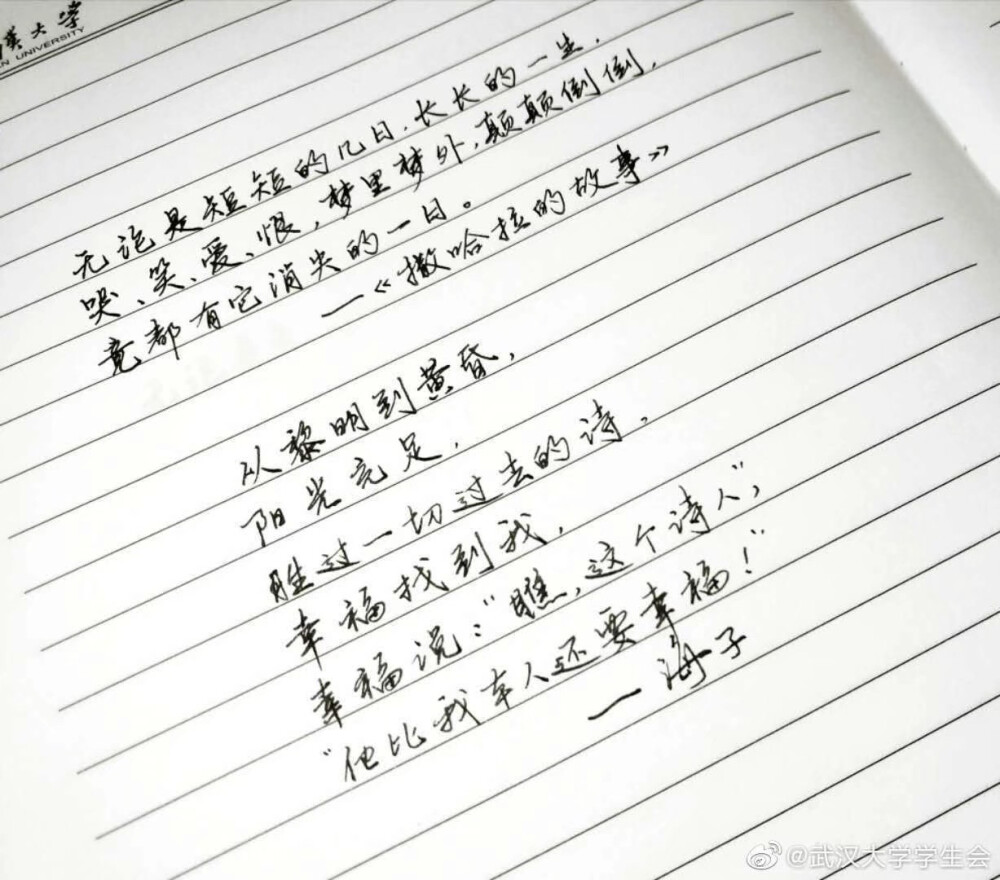 汉大学
UNIVERSITY
无论是短短的几日,长长的一生,
哭、笑、爱、恨,梦里梦外,颠颠倒倒,
竟都有它消失的一日。
—《撒哈拉的故事》
从黎明到黄昏,
阳光充足,
胜过一切过去的诗,
幸福找到我,
幸福说:“瞧,这个诗人”,
“他比我本人还要幸福!”
—海子
@武汉大学学生会